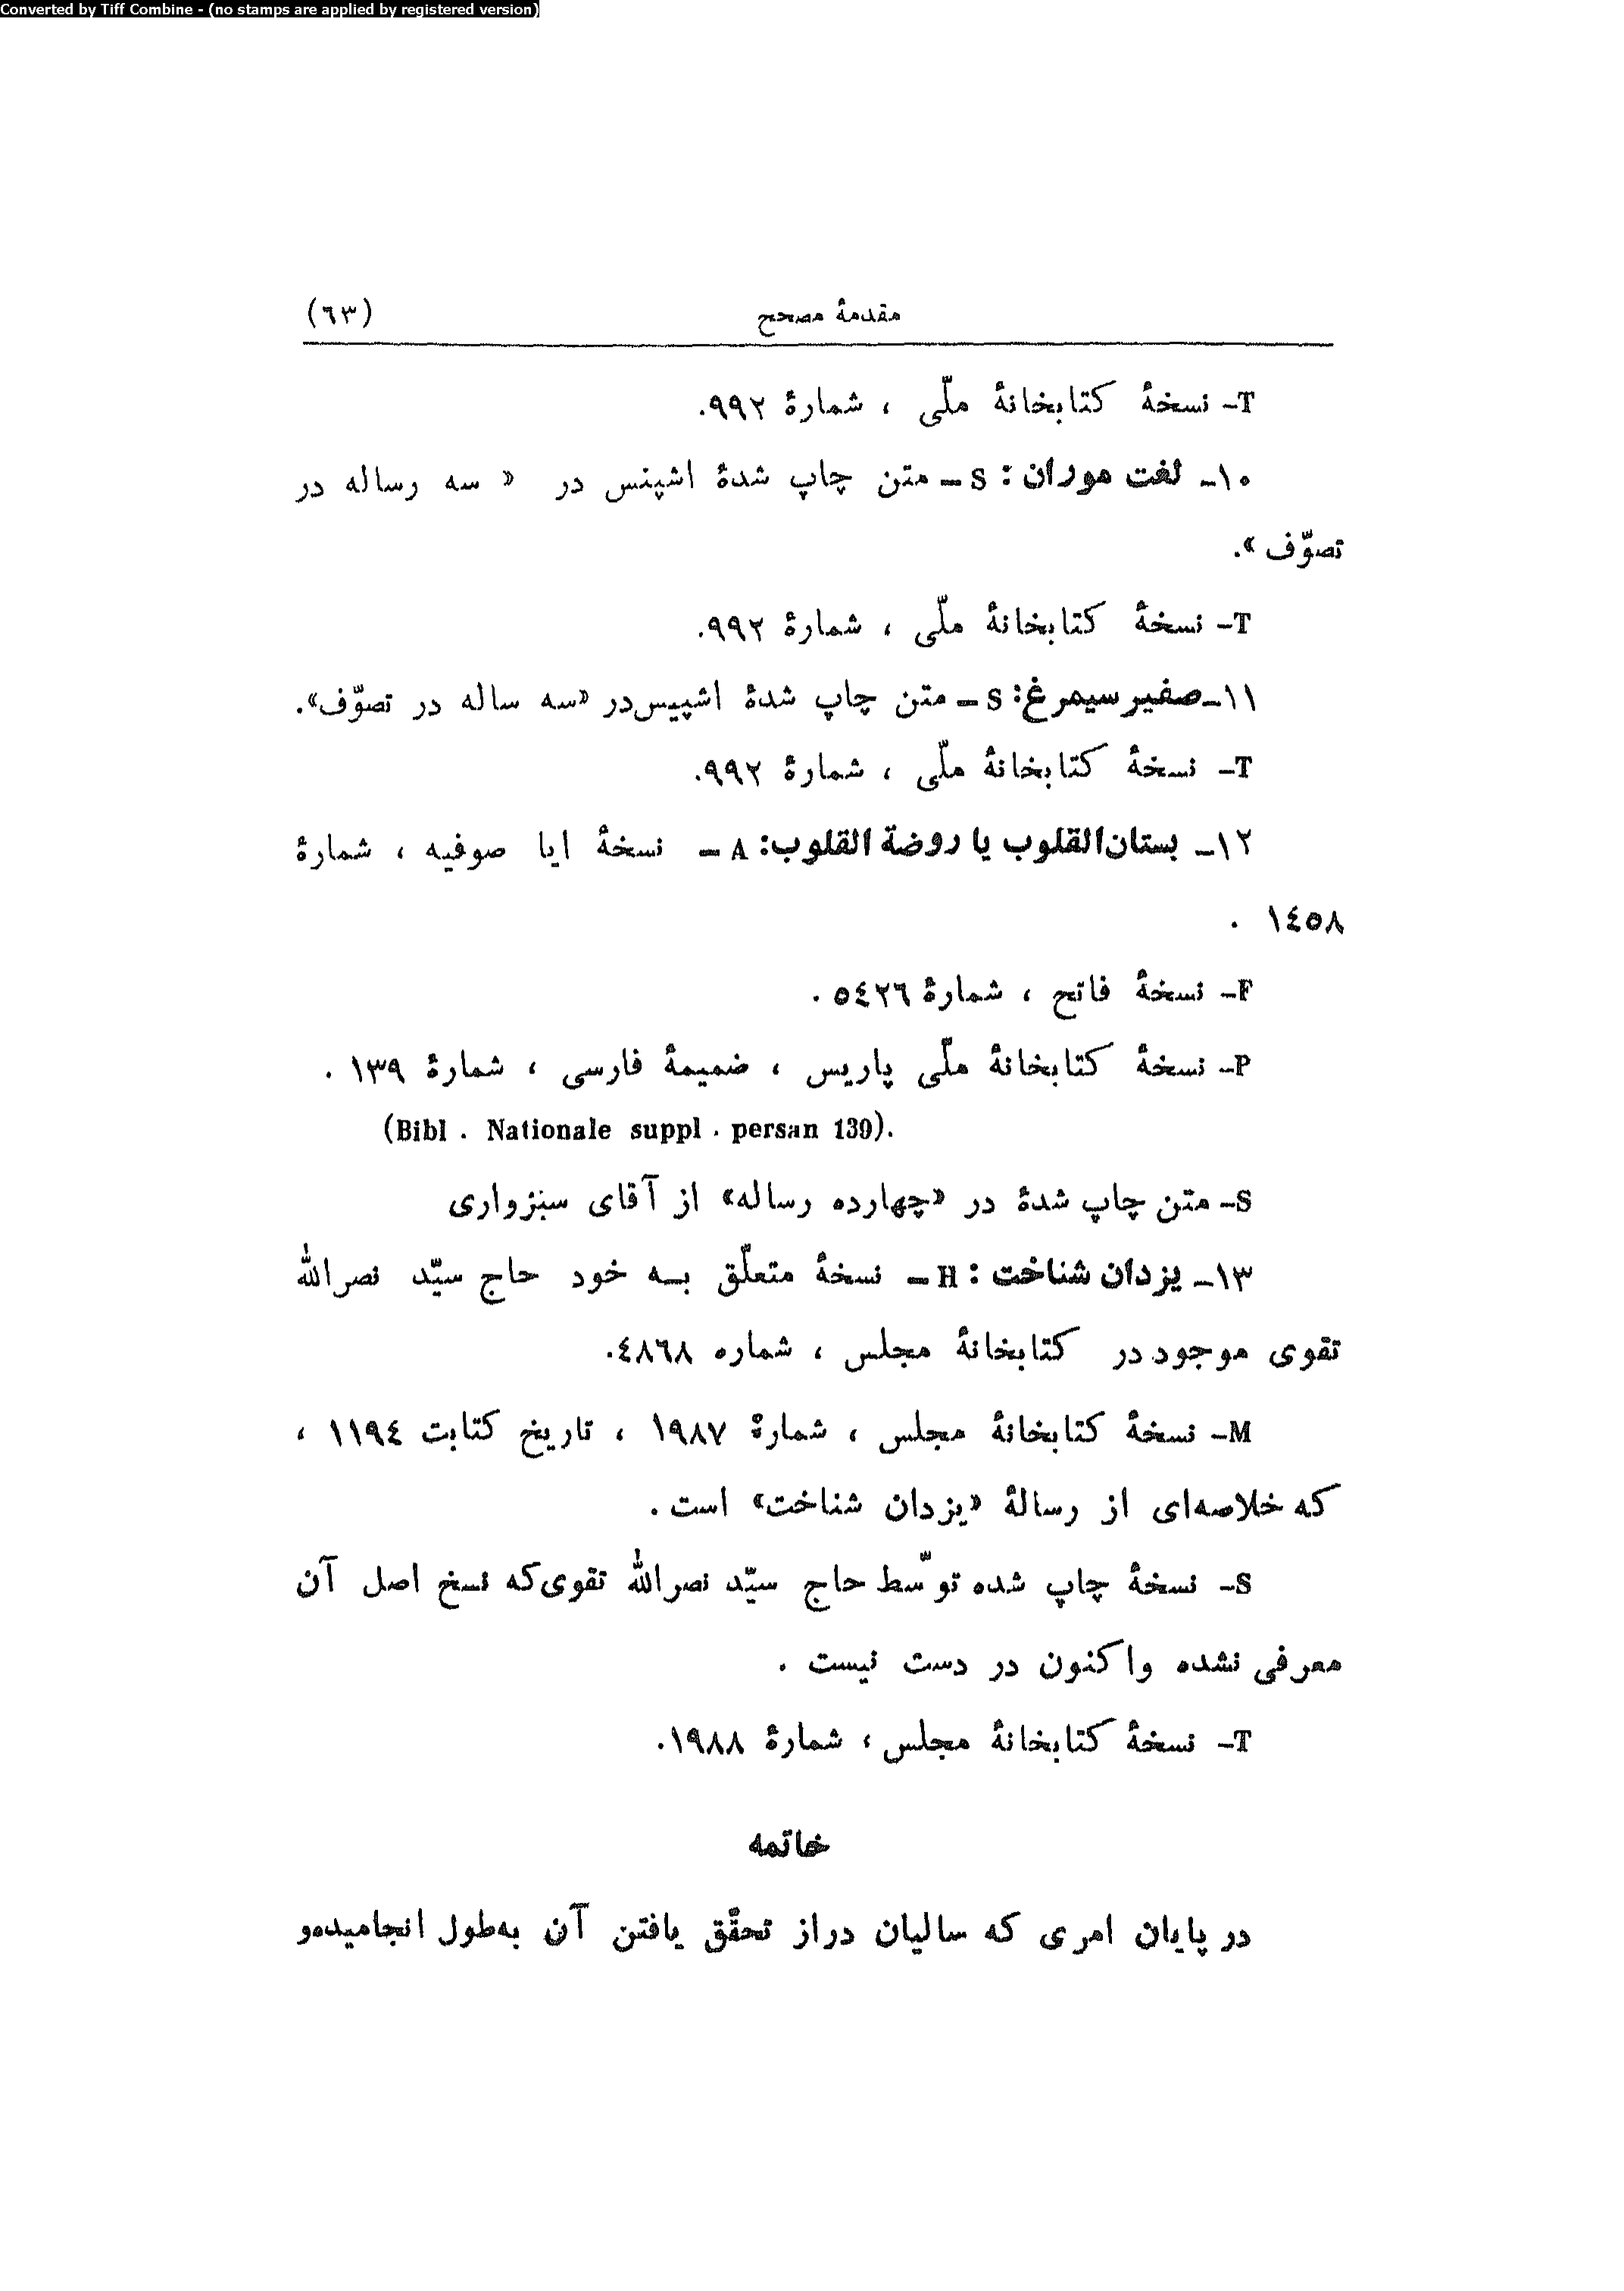 Converted by Tiff Combine - (no stamps are applied by registered version)
مقدمهٔ مصحح (٦٣)
T- نسخهٔ كتابخانهٔ ملّى ، شمارهٔ ٩٩٢.
١٠- لغت موران : S - متن چاپ شدهٔ اشپنس در « سه رساله در
تصوّف ».
T- نسخهٔ كتابخانهٔ ملّى ، شمارهٔ ٩٩٢.
١١- صفير سيمرغ: S - متن چاپ شدهٔ اشپيس‌در «سه ساله در تصوّف».
T- نسخهٔ كتابخانهٔ ملّى ، شمارهٔ ٩٩٢.
١٢- بستان‌القلوب يا روضة القلوب: A - نسخهٔ ايا صوفيه ، شمارهٔ
١٤٥٨ .
F- نسخهٔ فاتح ، شمارهٔ ٥٤٢٦ .
P- نسخهٔ كتابخانهٔ ملّى پاريس ، ضميمهٔ فارسى ، شمارهٔ ١٣٩ .
(Bibl . Nationale suppl . persan 139).
S- متن چاپ شدهٔ در «چهارده رساله» از آقاى سبزوارى
١٣- يزدان شناخت : H - نسخهٔ متعلّق بـه خود حاج سيّد نصرالله
تقوى موجود در كتابخانهٔ مجلس ، شماره ٤٨٦٨.
M- نسخهٔ كتابخانهٔ مجلس ، شمارهٔ ١٩٨٧ ، تاريخ كتابت ١١٩٤ ،
كه خلاصه‌اى از رسالهٔ «يزدان شناخت» است .
S- نسخهٔ چاپ شده توسّط حاج سيّد نصرالله تقوى‌كه نسخ اصل آن
معرفى نشده واكنون در دست نيست .
T- نسخهٔ كتابخانهٔ مجلس ، شمارهٔ ١٩٨٨.
خاتمه
در پايان امرى كه ساليان دراز تحقّق يافتن آن به‌طول انجاميده‌و